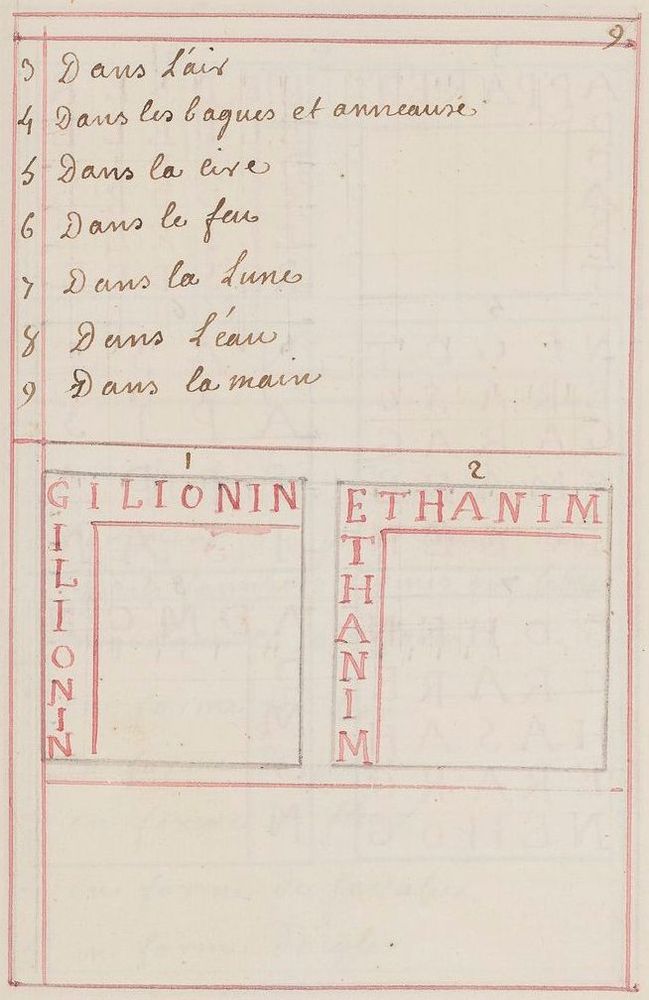 9
3 Dans L'air
4 Dans les bagues et anneause
5 Dans la cire
6 Dans le feu
7 Dans la Lune
8 Dans L'éau
9 Dans la main
1
GILIONIN
I
L
I
O
N
I
N
2
ETHANIM
T
H
A
N
I
M